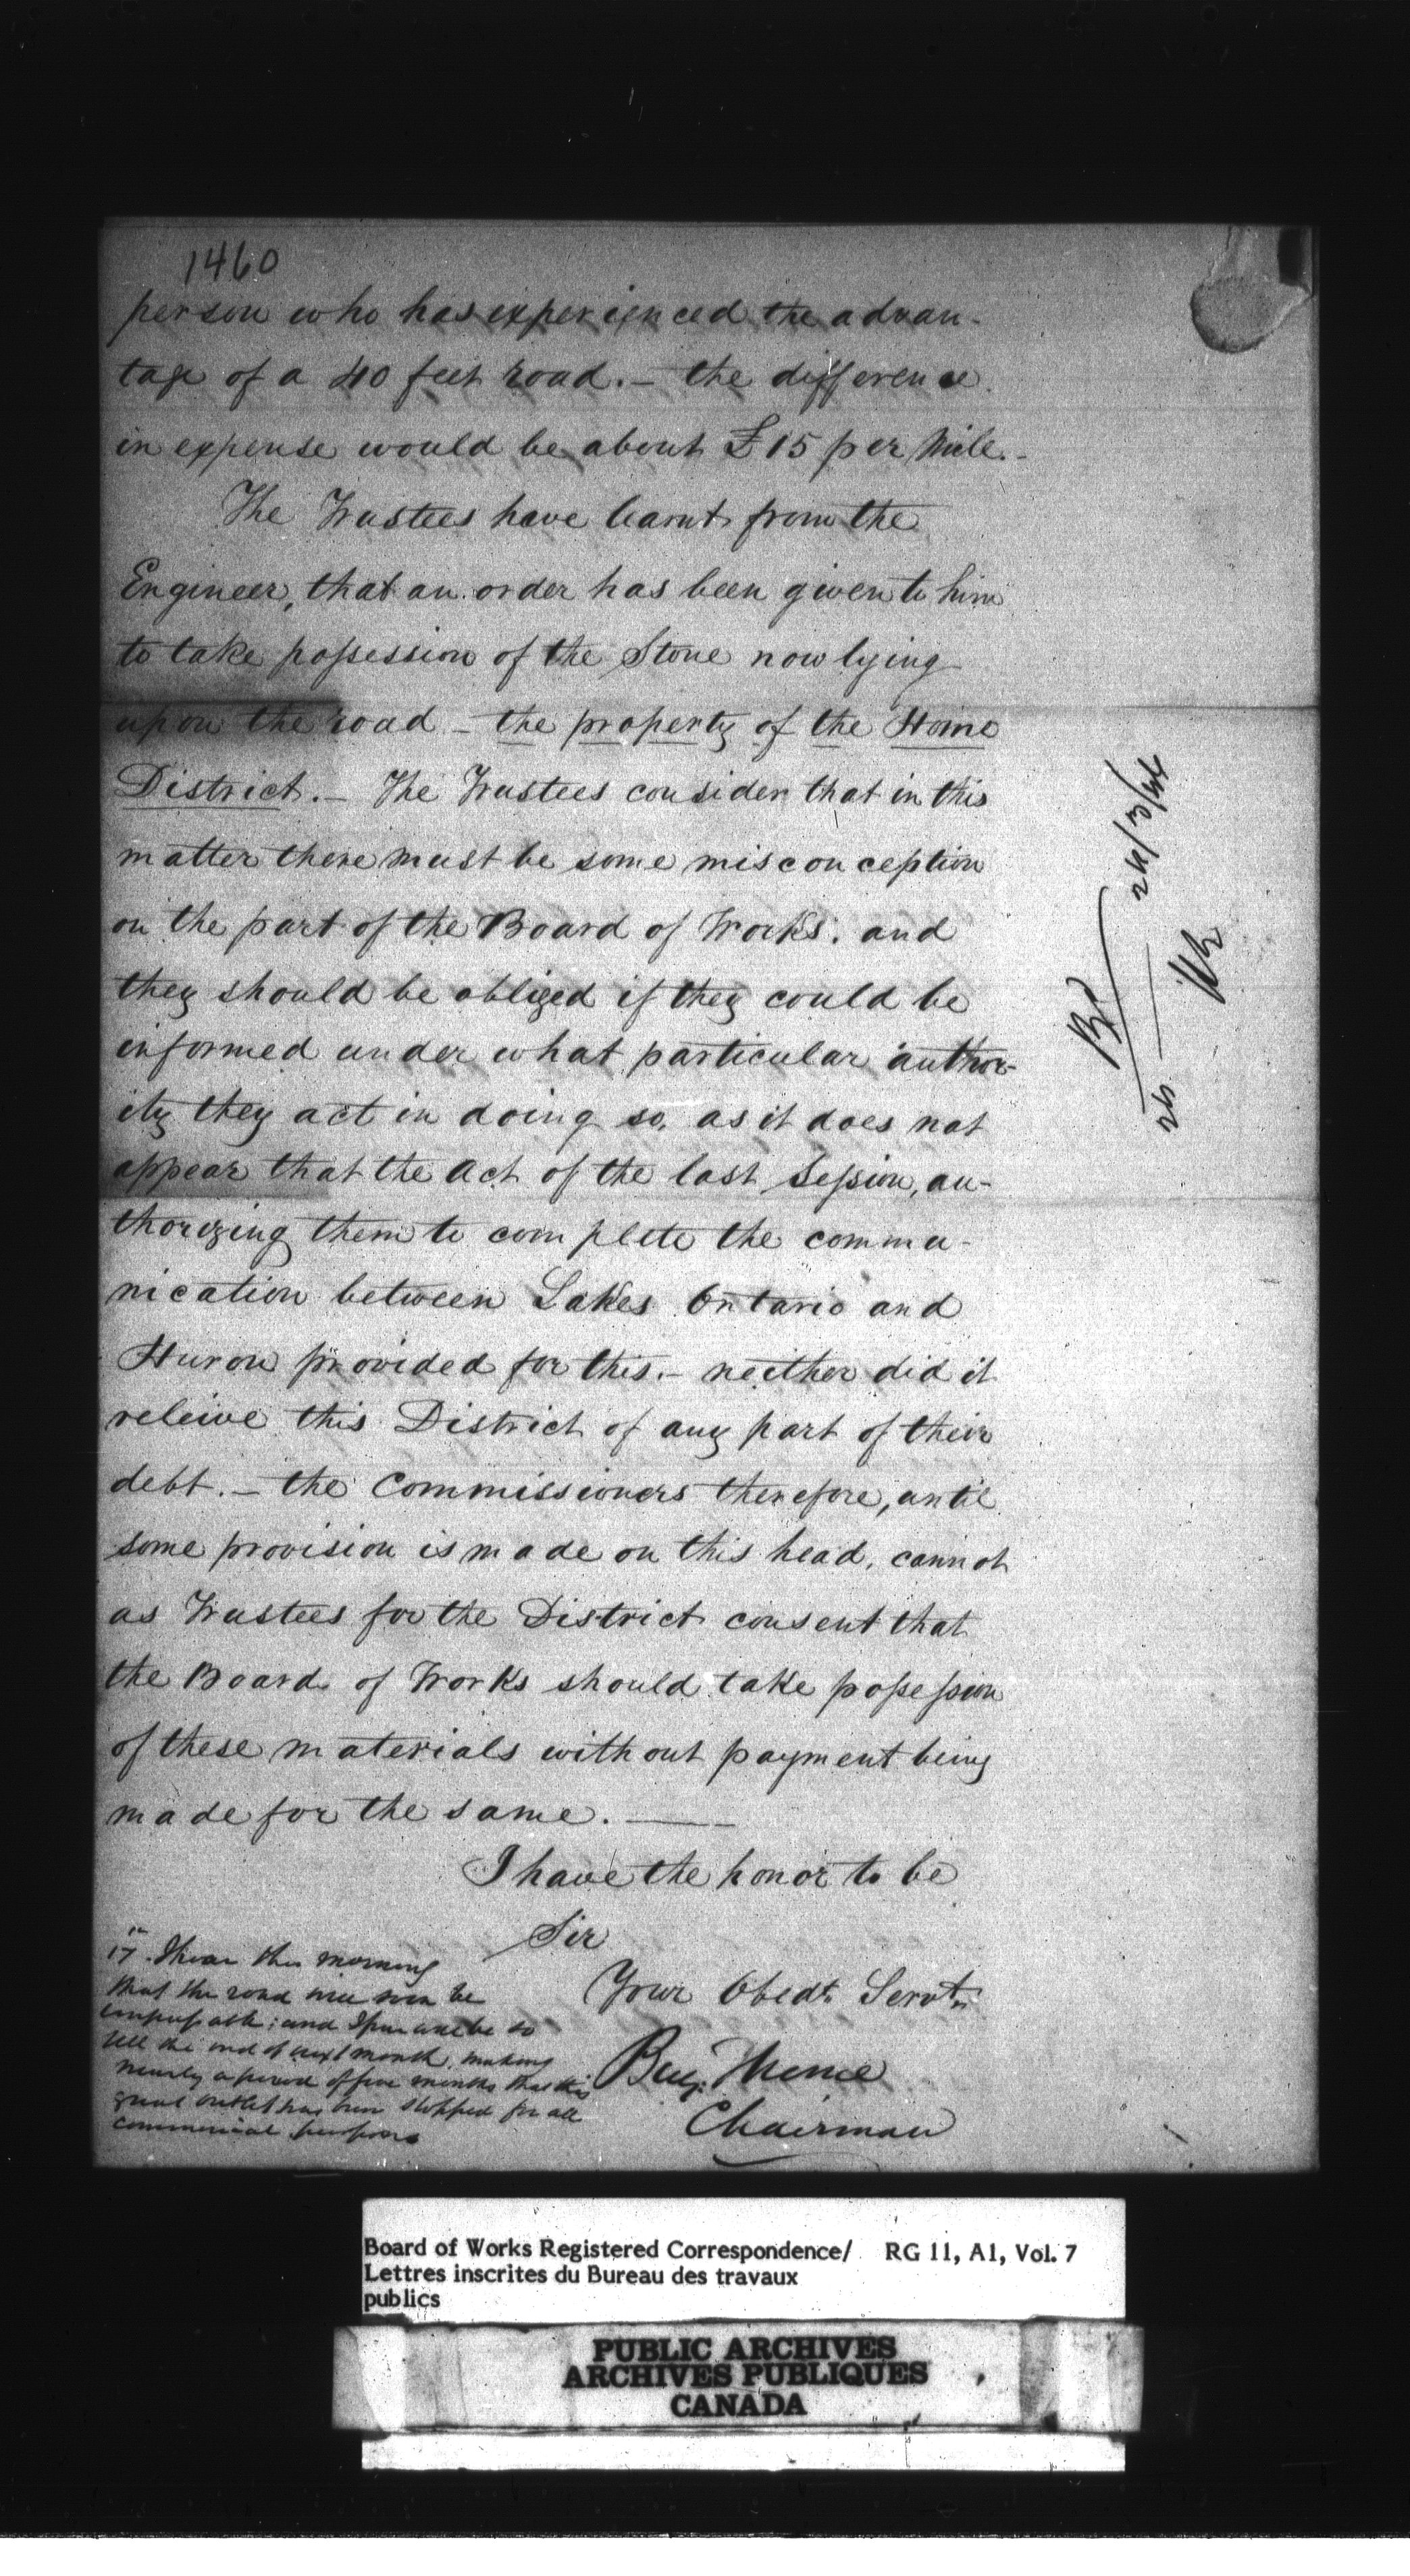 1460
person who has experienced the advan-
tage of a 40 feet road. - the difference
in expense would be about £15 per Mile. -
The Trustees have learnt from the
Engineer, that an order has been given to him
to take possession of the Stone now lying
upon the road - the property of the Home
District. - The Trustees consider that in this
matter there must be some misconception
on the part of the Board of Works. and
they should be obliged if they could be
informed under what particular author-
ity they act in doing so, as it does not
appear that the Act of the last Session, au-
thorizing them to complete the commu-
nication between Lakes Ontario and
Huron provided for this. - neither did it
releive this District of any part of their
debt. - the Commissioners therefore, until
some provision is made on this head, cannot
as Trustees for the District consent that
the Board of Works should take possession
of these materials without payment being
made for the same. -
I have the honor to be
Sir
Your Obedt. Servt.
Chairman
17th. I hear this morning
that the road will soon be
impassable; and I presume be so
till the end of next month, making
nearly a period of five months that this
great outlet has been stopped for all
commercial purposes
24/3/44
Board of Works Registered Correspondence/ RG 11, A1, Vol. 7
Lettres inscrites du Bureau des travaux
publics
PUBLIC ARCHIVES
ARCHIVES PUBLIQUES
CANADA